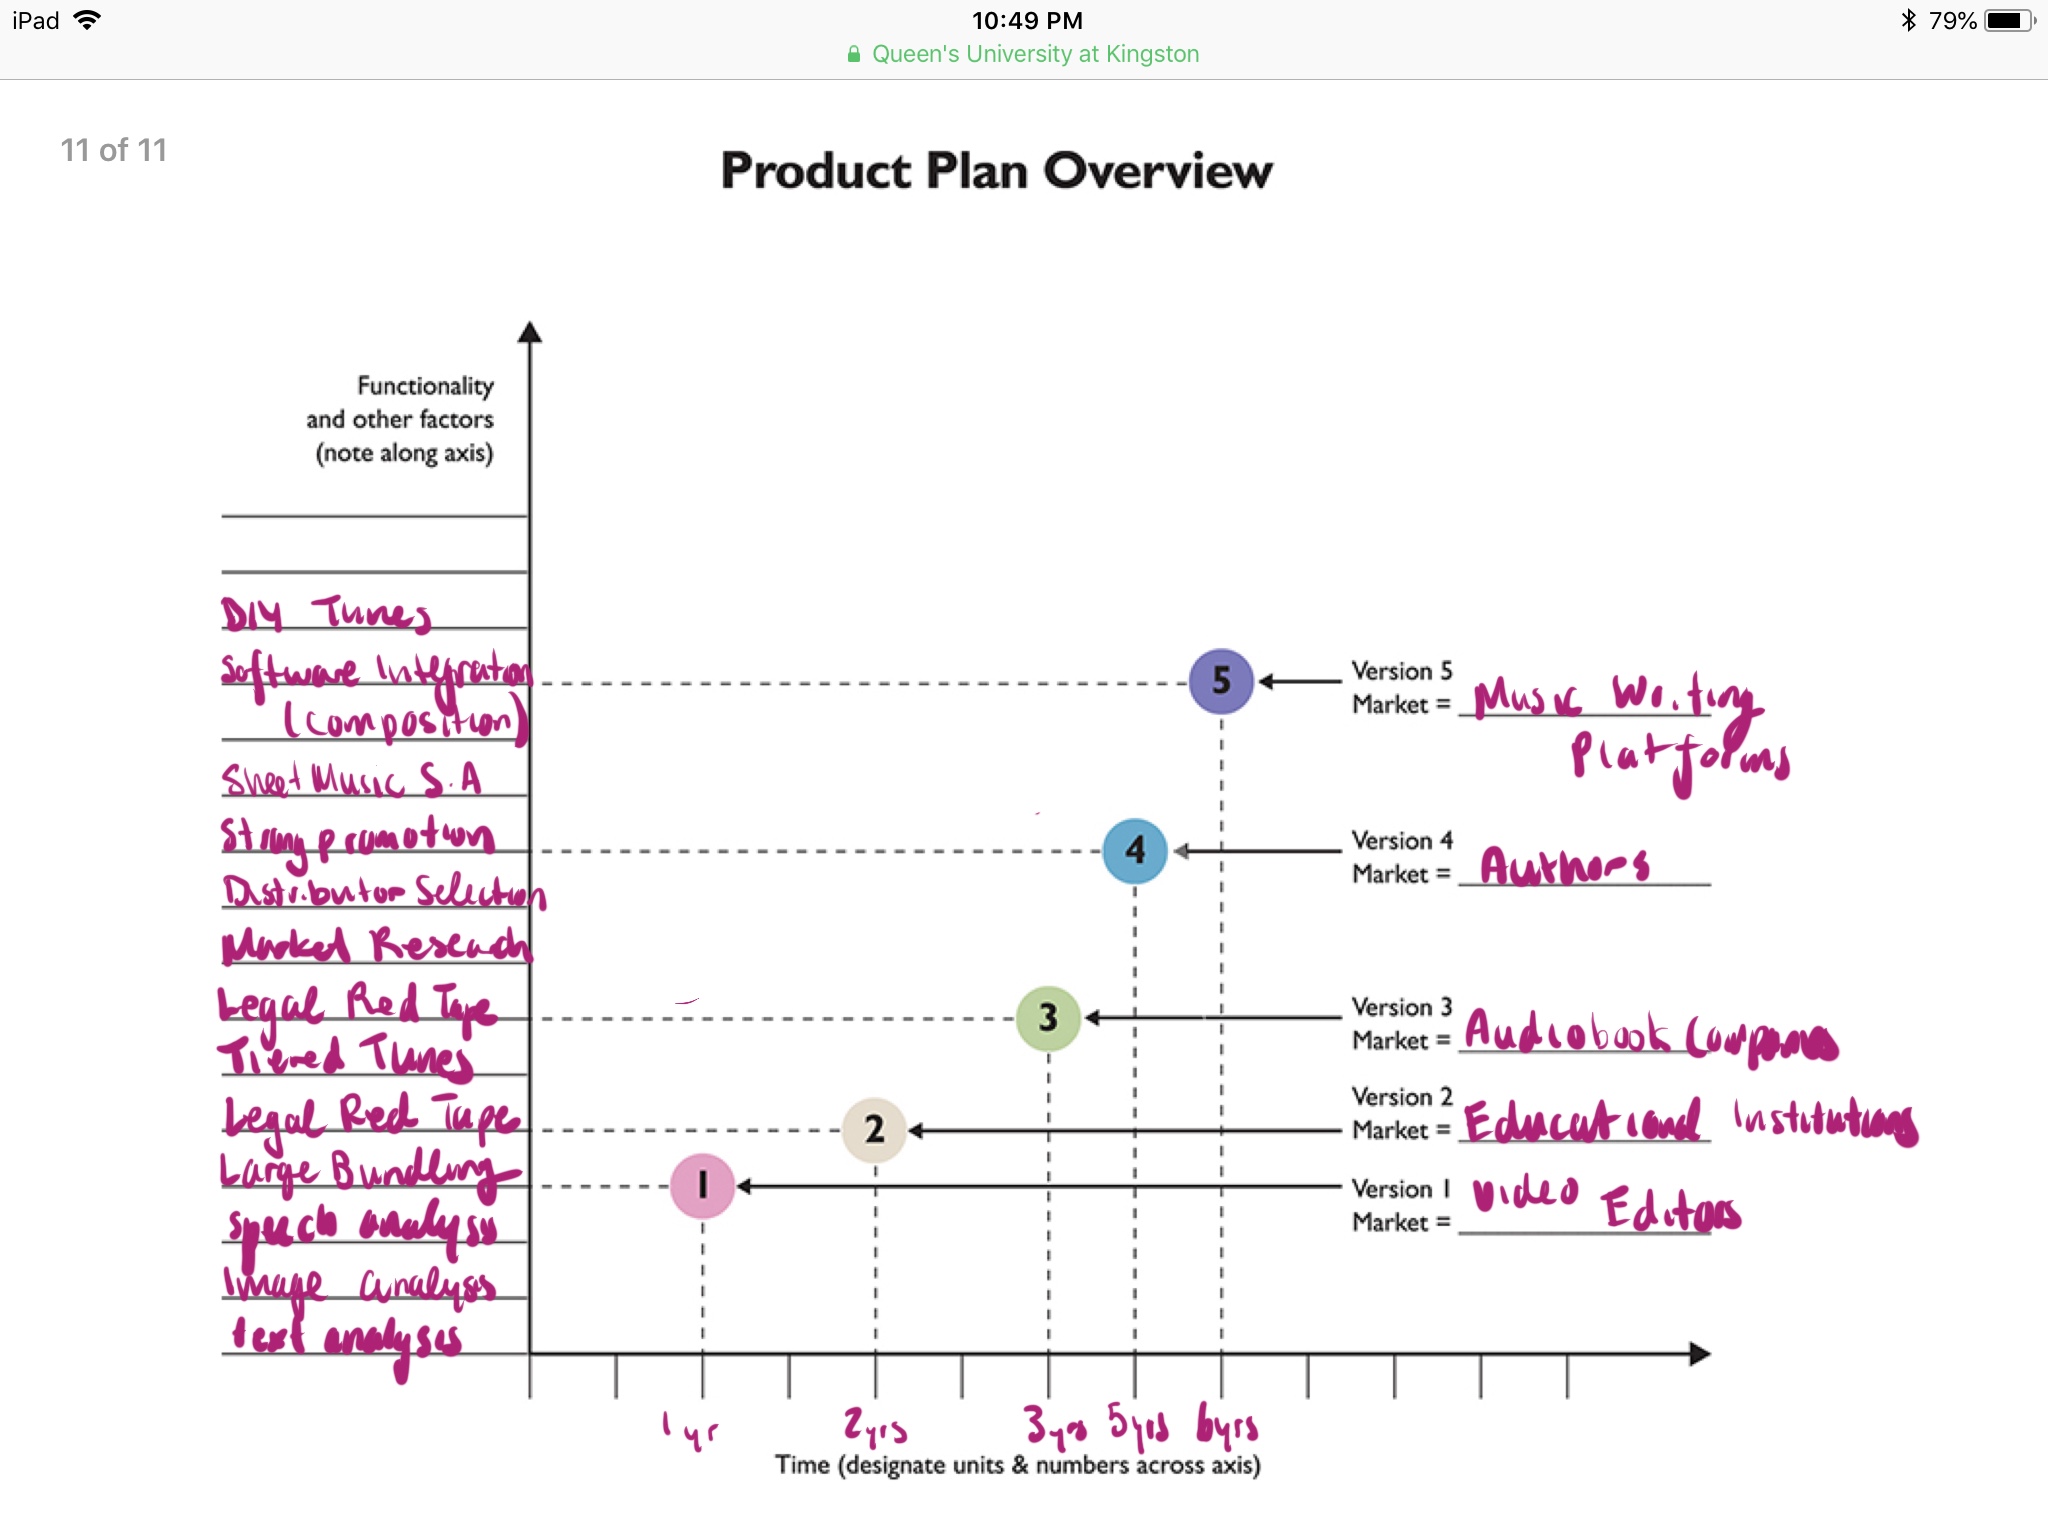 iPad
10:49 PM
79%
Queen's University at Kingston
11 of 11
Product Plan Overview
Functionality
and other factors
(note along axis)
DIY Tunes
Software Integration
(composition)
Sheet Music S.A
Strong promotion
Distributor Selection
Market Research
Legal Red Tape
Tiered Tunes
Legal Red Tape
Large Bundling
speech analysis
Image analysis
text analysis
5
Version 5
Market = Music Writing
Platforms
4
Version 4
Market = Authors
3
Version 3
Market = Audiobook Companies
2
Version 2
Market = Educational Institutions
1
Version 1
Market = Video Editors
1 yr 2yrs 3yrs 5yrs 6yrs
Time (designate units & numbers across axis)